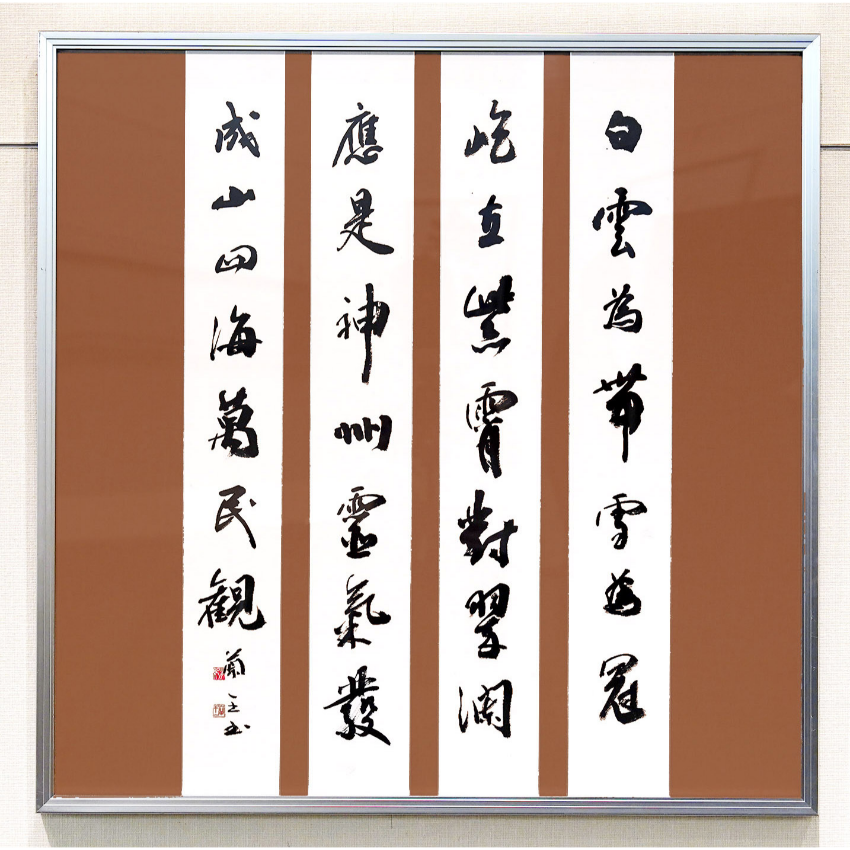 白雲為帶雪為冠
屹立紫霄對翠瀾
應是神州靈氣發
成山四海萬民観
蘭书